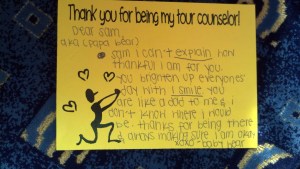 Thank you for being my tour counselor!
Dear Sam,
aka (papa bear)
Sam I can't explain how
thankful I am for you.
You brighten up everyones
day with 1 smile you
are like a dad to me & i
don't know where I would
be. thanks for being there
& always making sure I am okay.
xoxo - baby bear